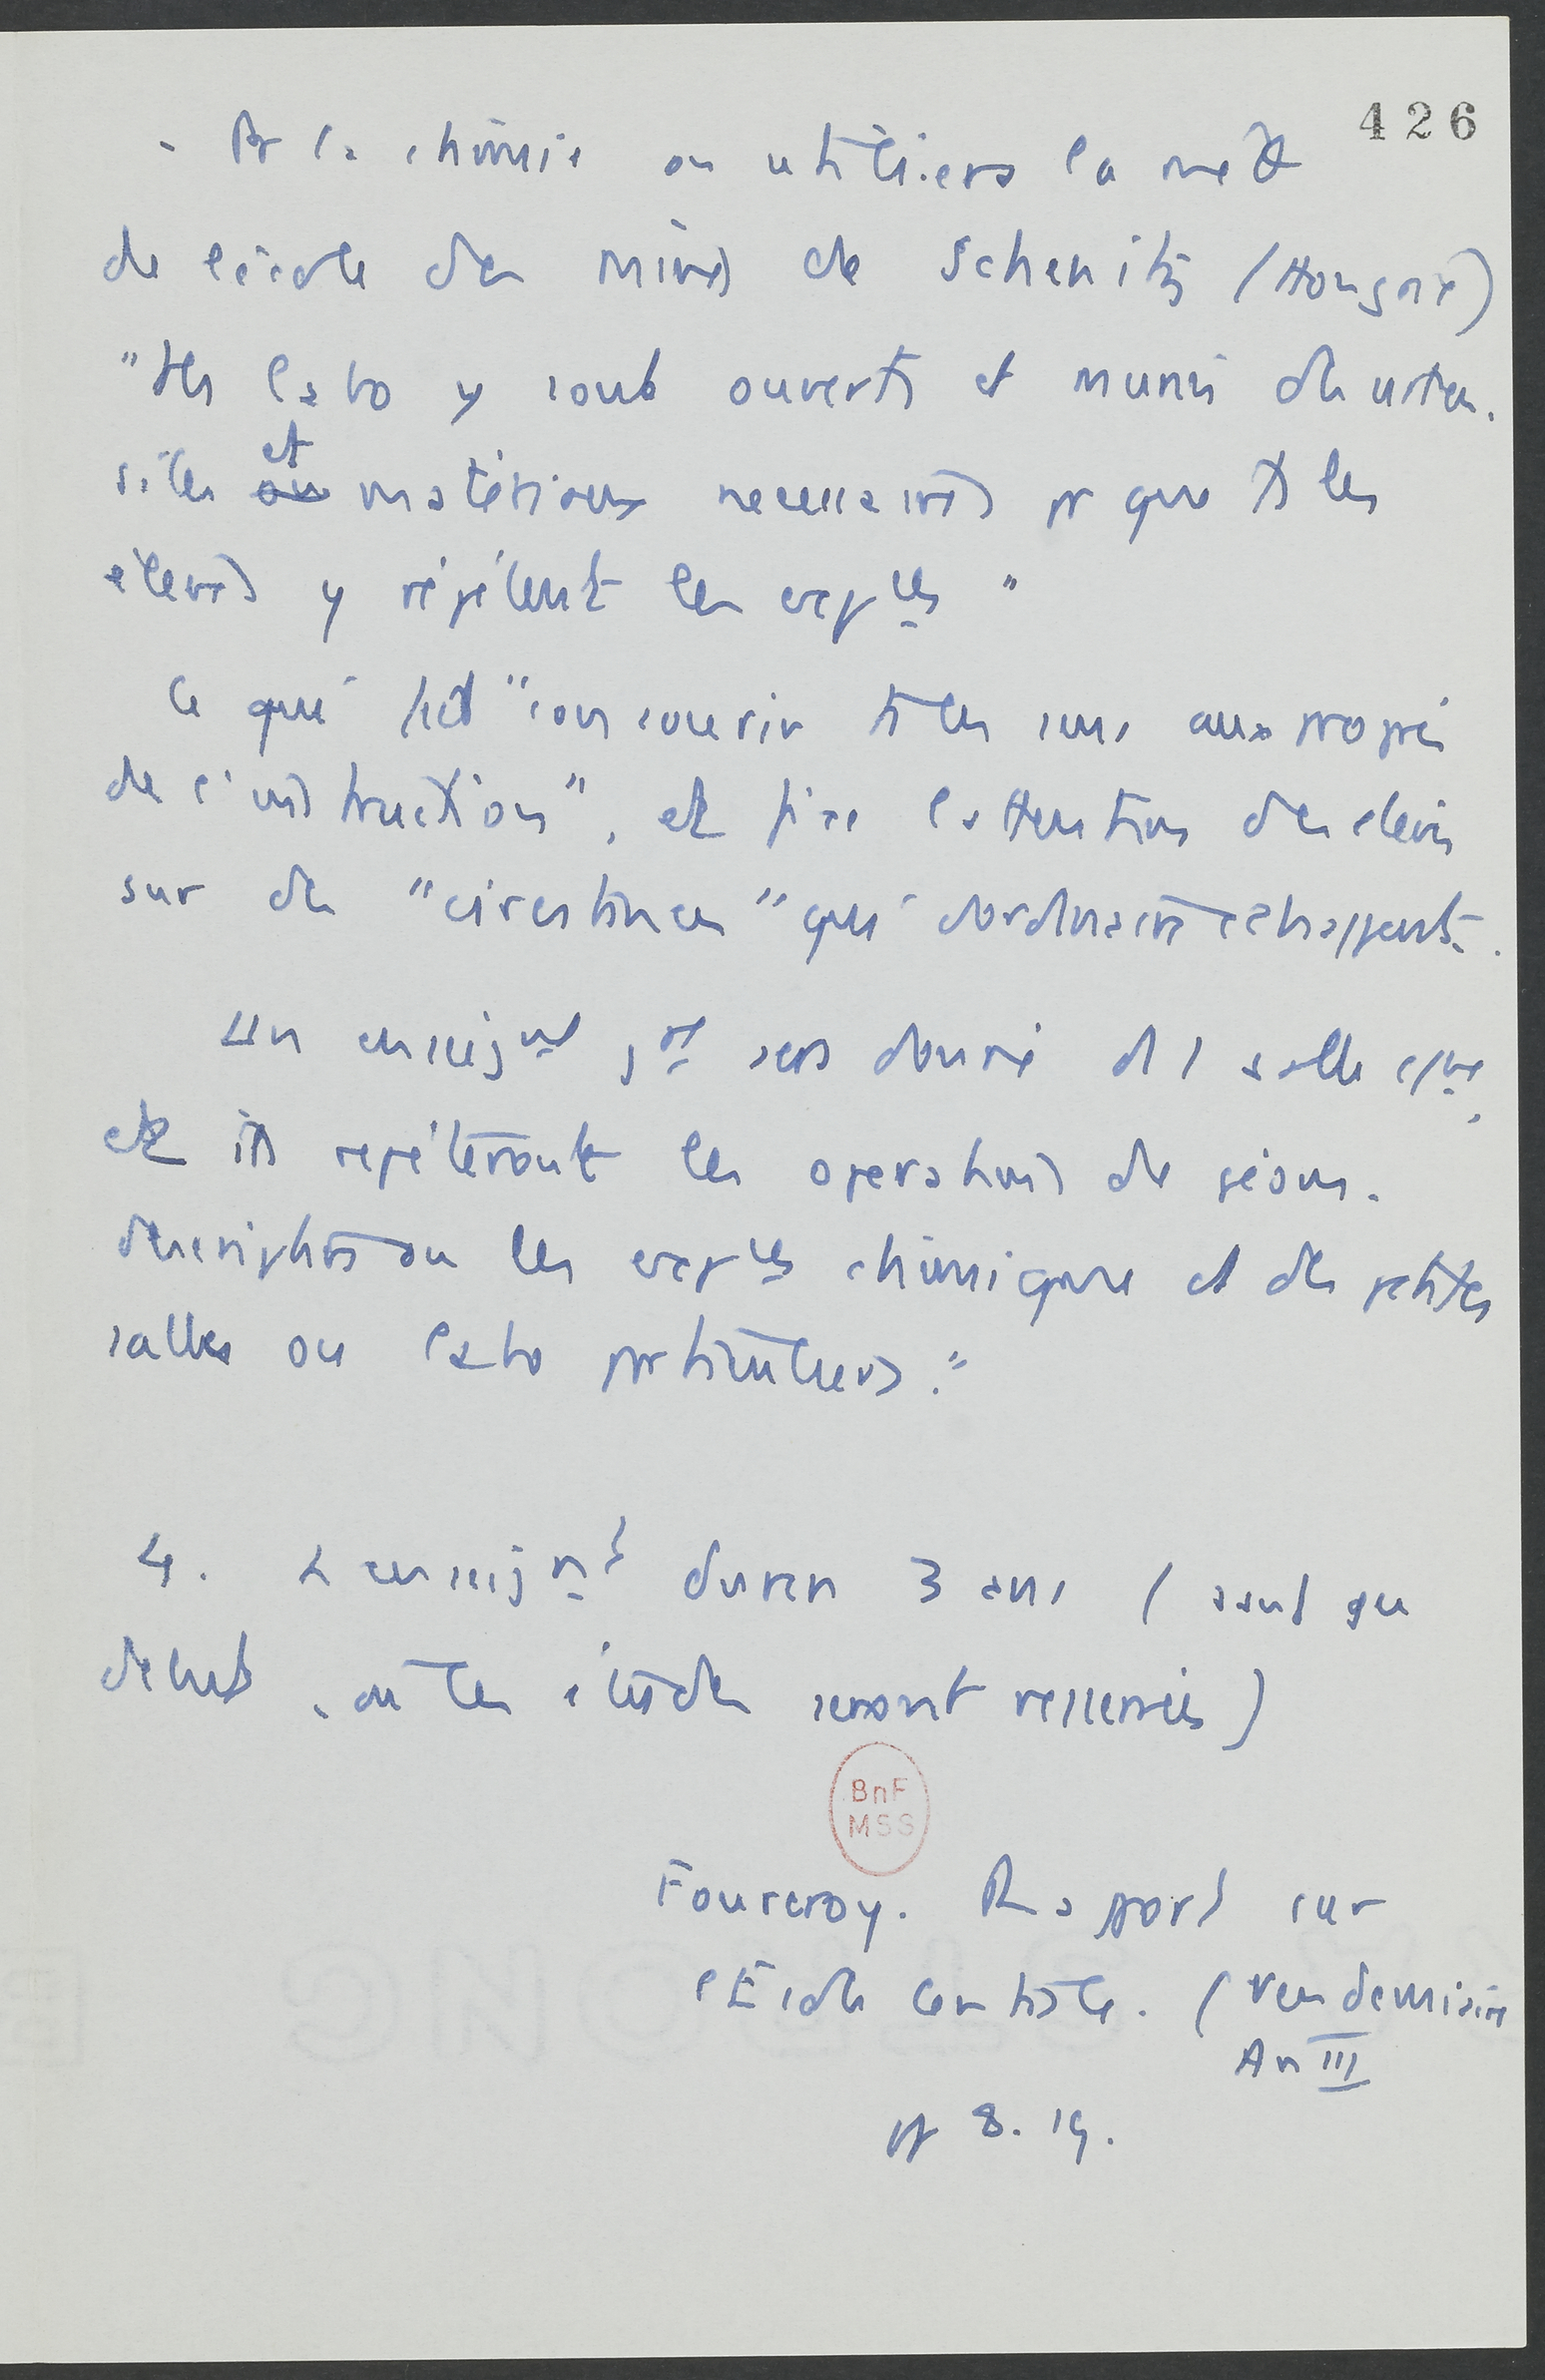 426
- Pr la chimie on utilisera la metde
de l'école des mines de Schemnitz (Hongrie)
"Des labo y sont ouverts et munis des usten-
siles et ou matériaux necessaires pr que ts les
élèves y répètent les expces"
Ce qui fait "concourir ts les sens aux progrès
de l'instruction", et fixe l'attention des élèves
sur des "circstances" qui d'ordinaire échappent.
Un enseignt sera donné ds 1 salle cne,
et ils repéteront les operations de géom.
descriptive ou les expces chimiques ds des petites
salles ou labo particuliers."
4. L'enseignt durera 3 ans (sauf au
debut, où les études seront resserrées)
BnF
MSS
Fourcroy. Rapport sur
l'Ecole centrale. (Vendemiaire
An III
pp 8.19.